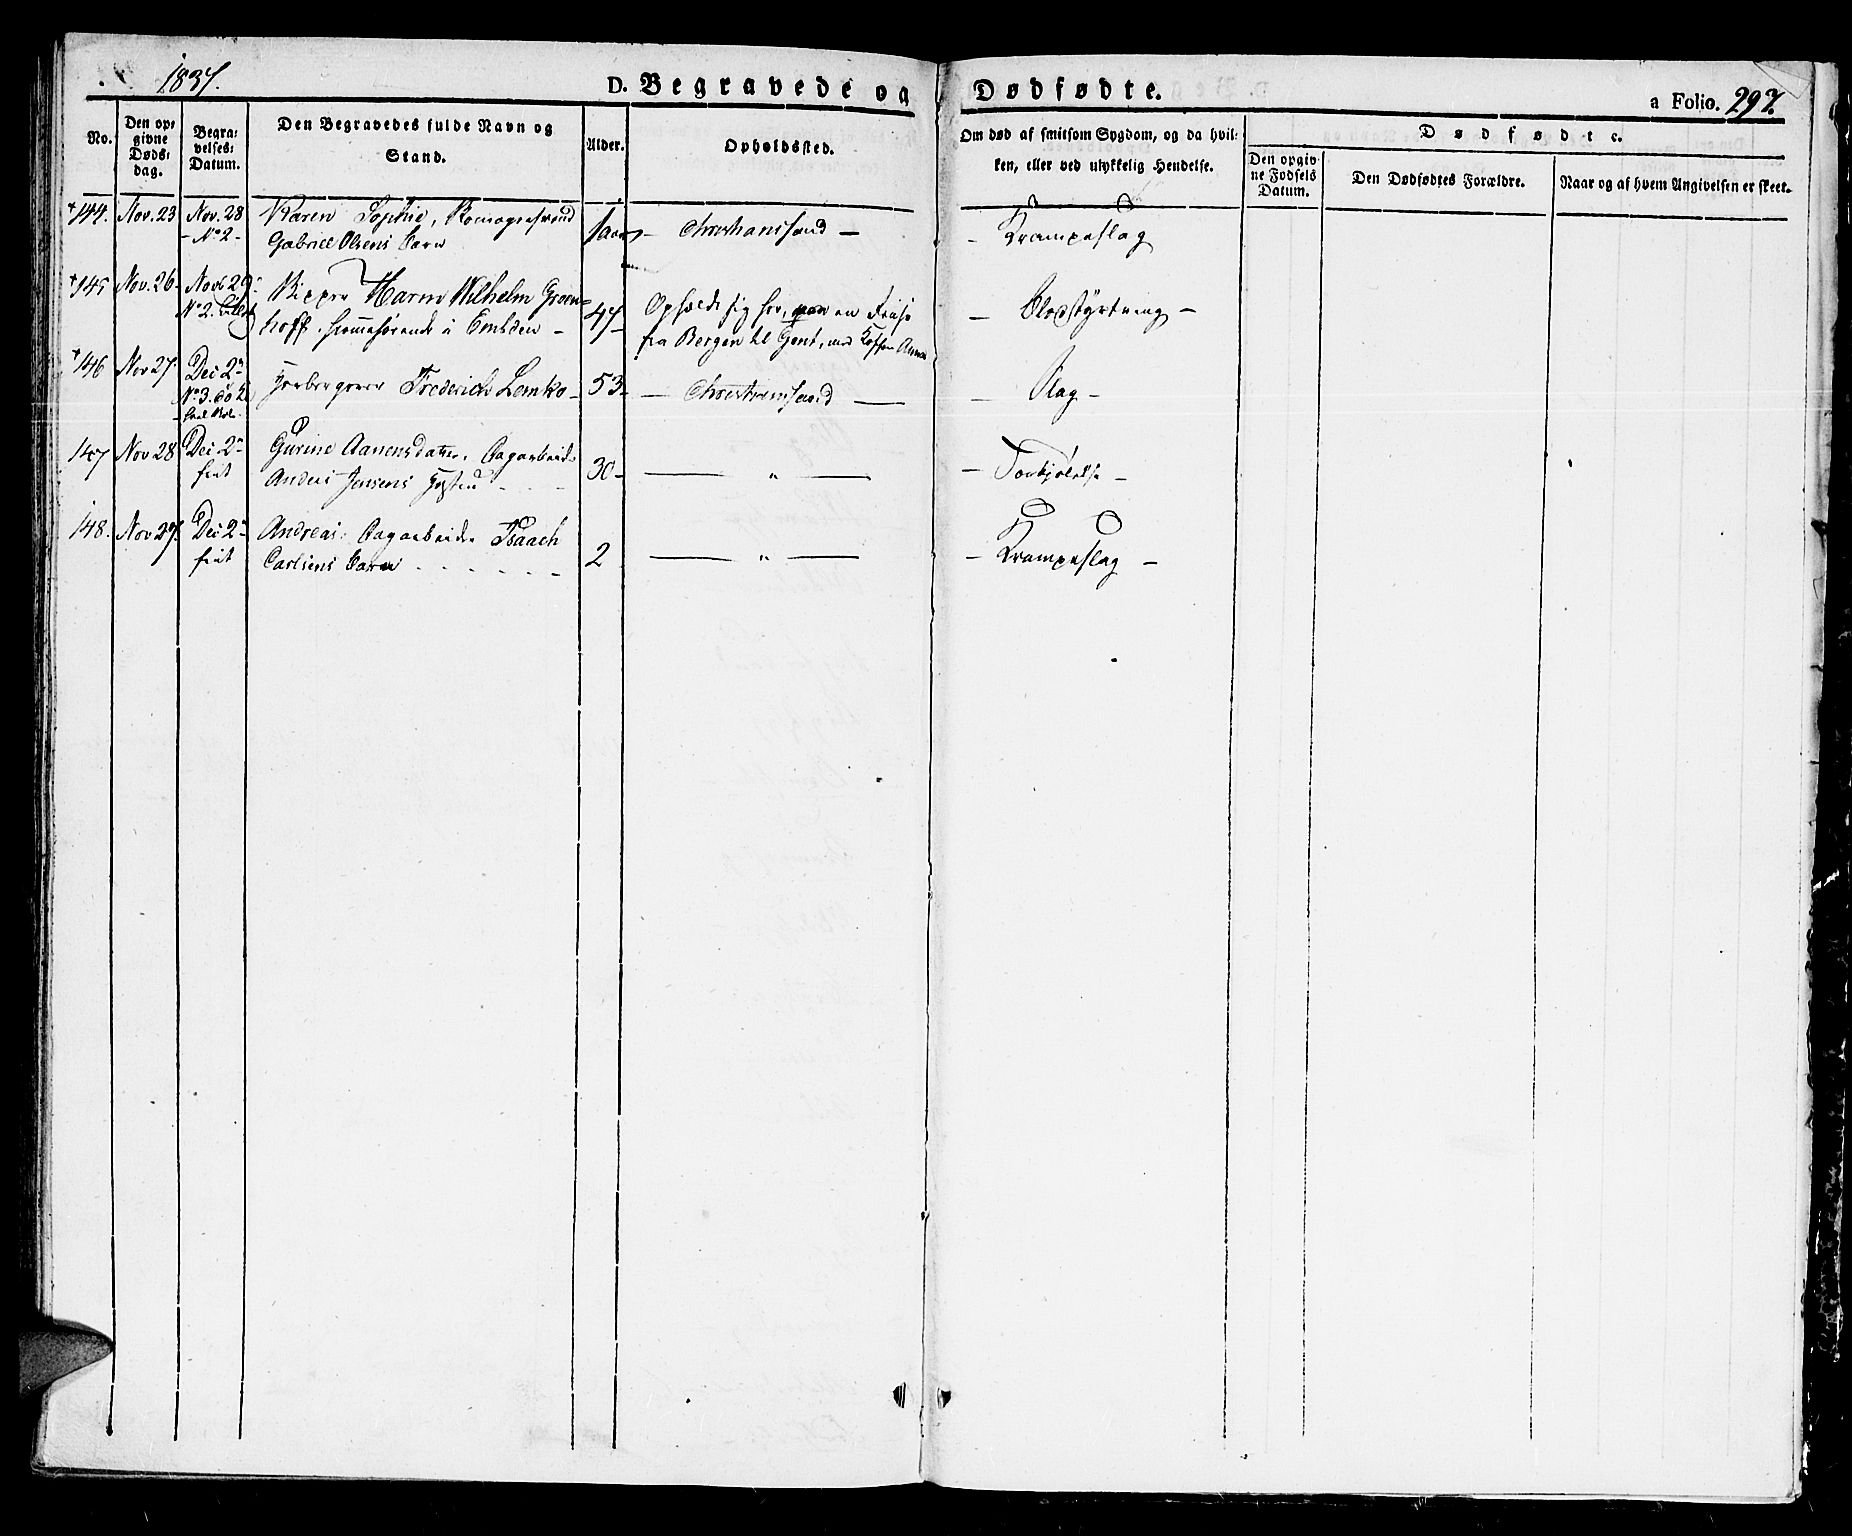 1837.
D. Begravede og Dødfødte.
a Folio. 297.
No.
Den op-
givne
Døds-
dag.
Begra-
velses-
Datum.
Den Begravedes fulde Navn og
Stand.
Alder.
Opholdssted.
Om død af smitsom Sygdom, og da hvil-
ken, eller ved ulykkelig Hendelse.
Dødfødte.
Den opgiv-
ne Fødsels
Datum.
Den Dødfødtes Forældre.
Naar og af hvem Angivelsen er skeet.
144. Nov. 23 Nov. 28 Karen Sophie,
- No 2 - Gabriel Olsens Barn 1 aar - Christianssand - - Krampeslag
145 Nov. 26 - Nov. 29 Harm Wilhelm Groen-
No 2. hoff. hjemmehørende i Embden - 47 - Opholdt sig her, en Reise - Blodstyrtning -
fra Bergen til Gent, med Anna
146 Nov 27. Dec 2 Frederich Lemko - 53 - - Christianssand - - Slag -
No 3.
147 Nov 28 Dec 2 Gurine Aanensdatter, Dagarbeider
frit Anders Jensens Hustru - - - 30 - - " - - Forkjølelse -
148. Nov 27. Dec 2 Andreas, Dagarbeider Isaach
frit Carlsens Barn - - - - - - 2 - " - - Krampeslag -